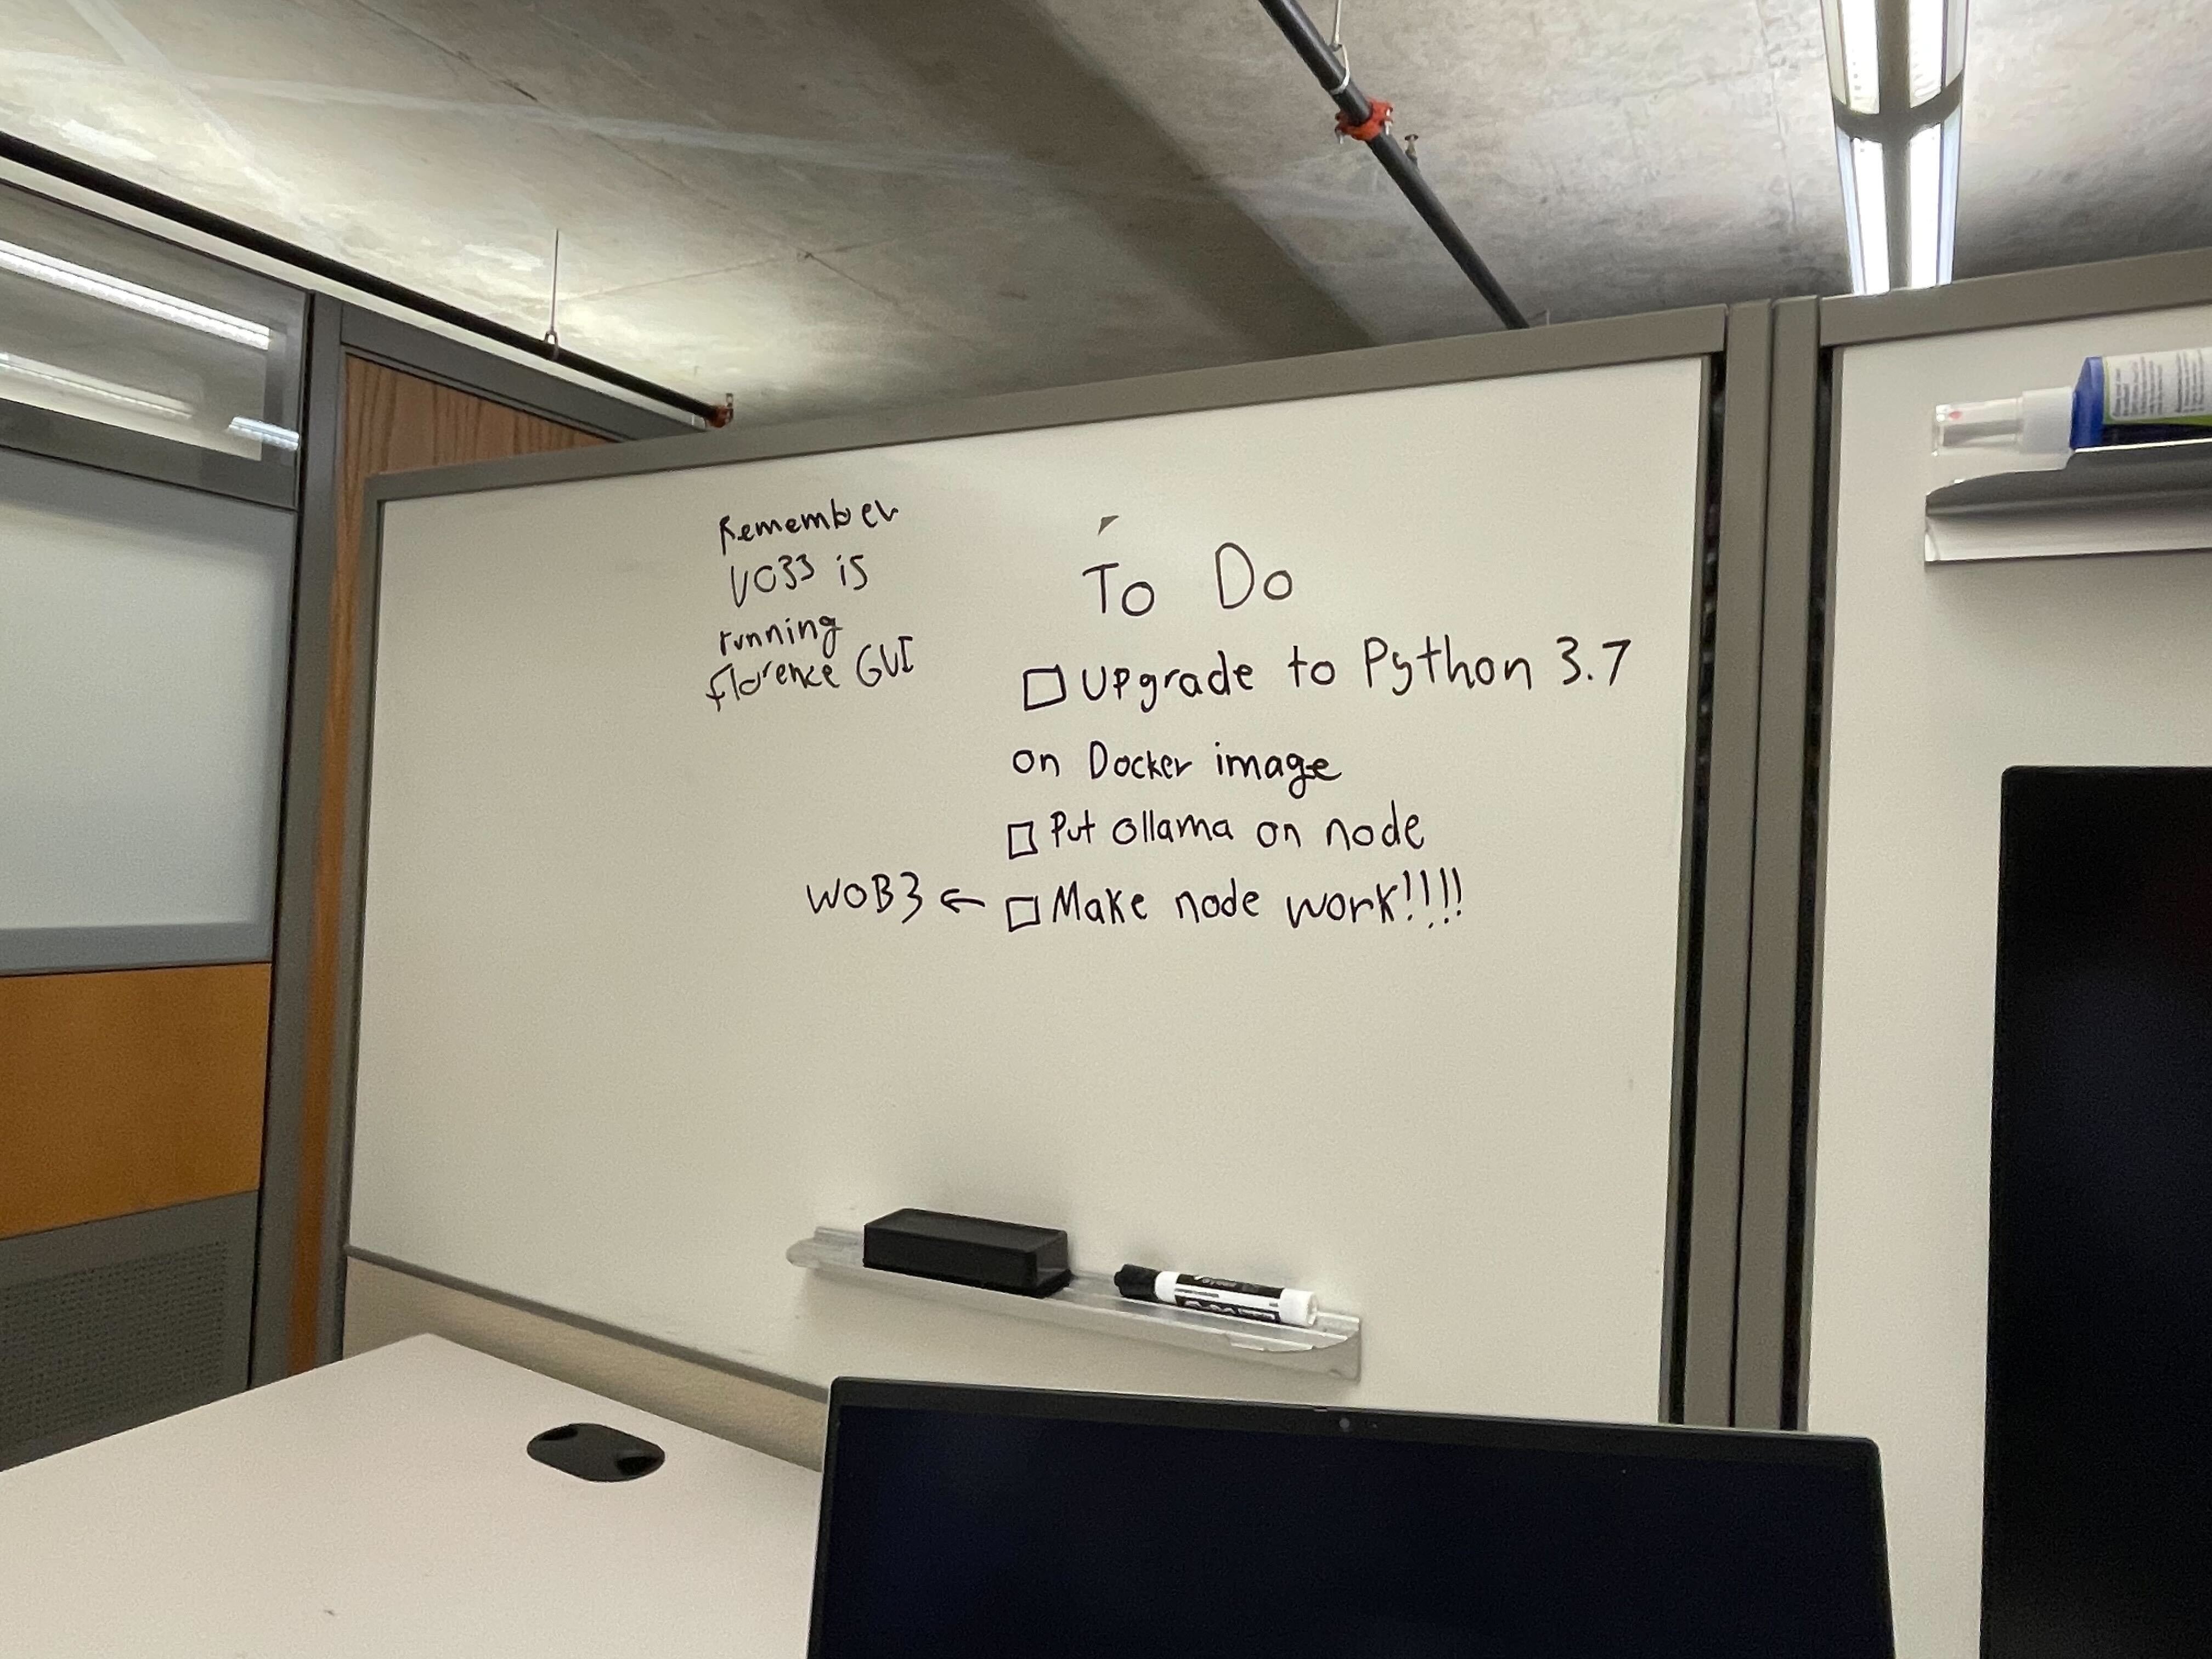 Remember
V033 is
running
florence GUI
To Do
Upgrade to Python 3.7
on Docker image
Put Ollama on node
W0B3 ← Make node work!!!!